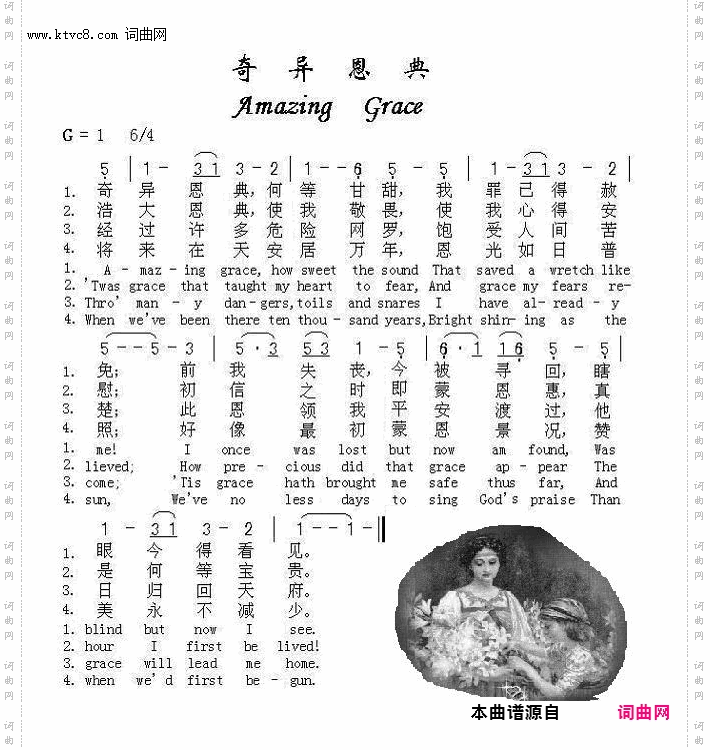 www.ktvc8.com 词曲网
奇异恩典
Amazing Grace
G = 1 6/4
5 | 1 - 31 3 - 2 | 1 - - 6 5 - 5 | 1 - 31 3 - 2 |
1. 奇 异 恩 典, 何 等 甘 甜, 我 罪 己 得 赦
2. 浩 大 恩 典, 使 我 敬 畏, 使 我 心 得 安
3. 经 过 许 多 危 险 网 罗, 饱 受 人 间 苦
4. 将 来 在 天 安 居 万 年, 恩 光 如 日 普
1. A - maz - ing grace, how sweet the sound That saved a wretch like
2. 'Twas grace that taught my heart to fear, And grace my fears re-
3. Thro' man - y dan-gers, toils and snares I have al-read-y
4. When we've been there ten thou-sand years, Bright shin-ing as the
5 - - 5 - 3 | 5 · 3 53 1 - 5 | 6 · 1 16 5 - 5 |
1. 免; 前 我 失 丧, 今 被 寻 回, 瞎
2. 慰; 初 信 之 时 即 蒙 恩 惠, 真
3. 楚; 此 恩 领 我 平 安 渡 过, 他
4. 照; 好 像 最 初 蒙 恩 景 况, 赞
1. me! I once was lost but now am found, Was
2. lieved; How pre - cious did that grace ap - pear The
3. come; 'Tis grace hath brought me safe thus far, And
4. sun, We've no less days to sing God's praise Than
1 - 31 3 - 2 | 1 - - 1 - ‖
1. 眼 今 得 看 见。
2. 是 何 等 宝 贵。
3. 日 归 回 天 府。
4. 美 永 不 减 少。
1. blind but now I see.
2. hour I first be lived!
3. grace will lead me home.
4. when we'd first be - gun.
本曲谱源自 词曲网